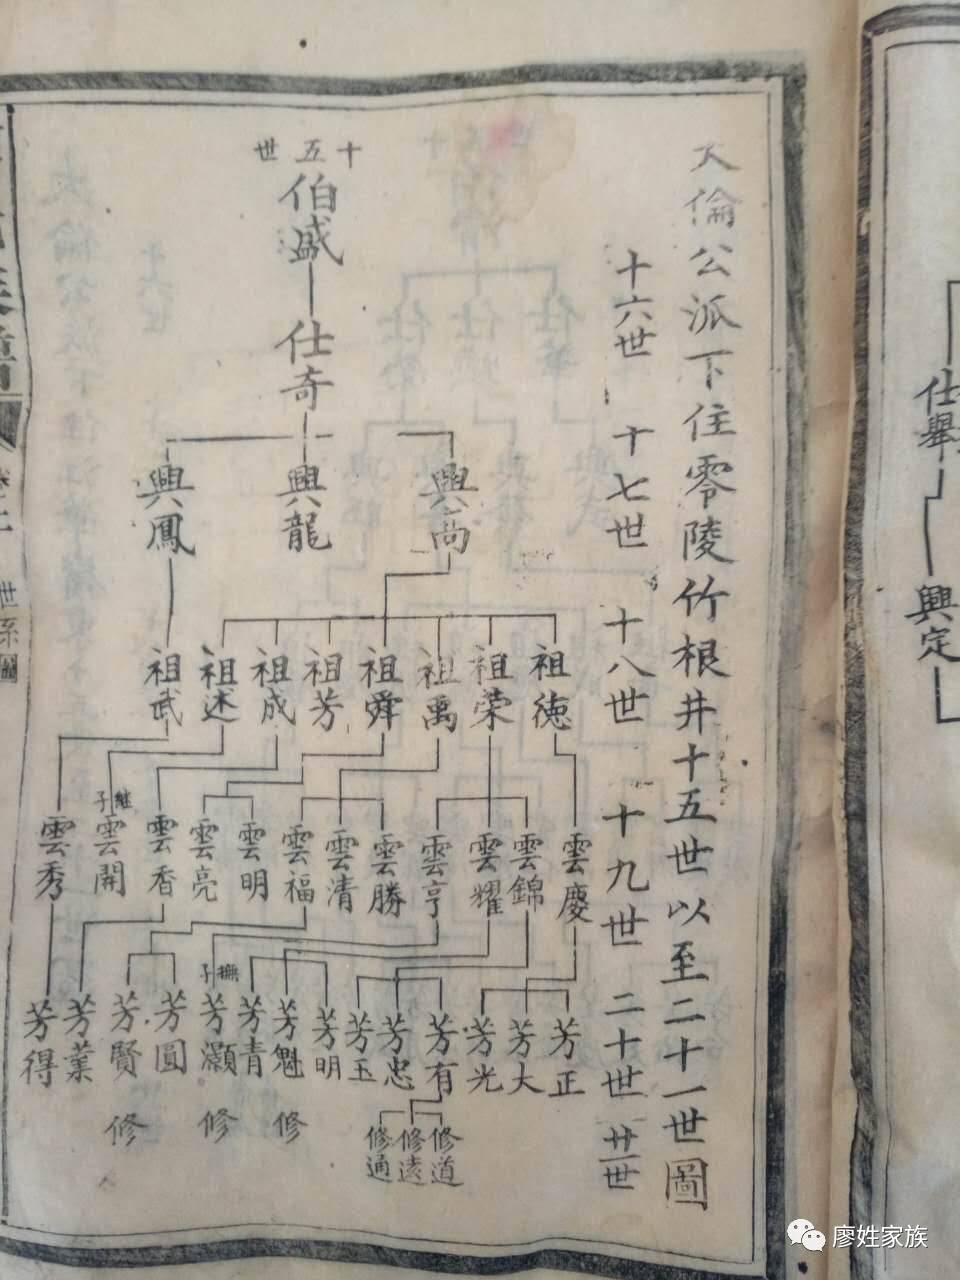 大倫公派下住零陵竹根井十五世以至二十一世圖
十六世 十七世 十八世 十九世 二十世 廿一世
十五世
伯盛
仕奇
興尚 興龍 興鳳
祖德 祖荣 祖禹 祖舜 祖芳 祖成 祖述 祖武
雲慶 雲錦 雲耀 雲亨 雲勝 雲清 雲福 雲明 雲亮 雲香 継子 雲開 雲秀
芳正 芳大 芳光 芳有 芳忠 芳玉 芳明 芳魁 芳青 撫子 芳灝 芳圓 芳賢 芳業 芳得
修道 修遠 修通 修 修 修
世系圖
仕舉
興定
廖姓家族